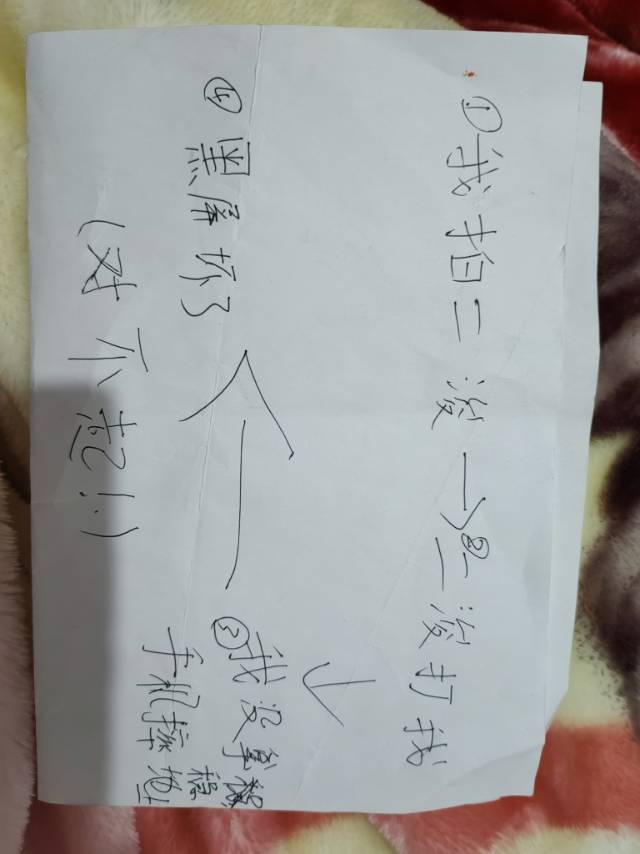 ①我拍二浚→②二浚打我
↓
③我没拿稳
手机摔地上
←
④黑屏坏了
(对不起!)